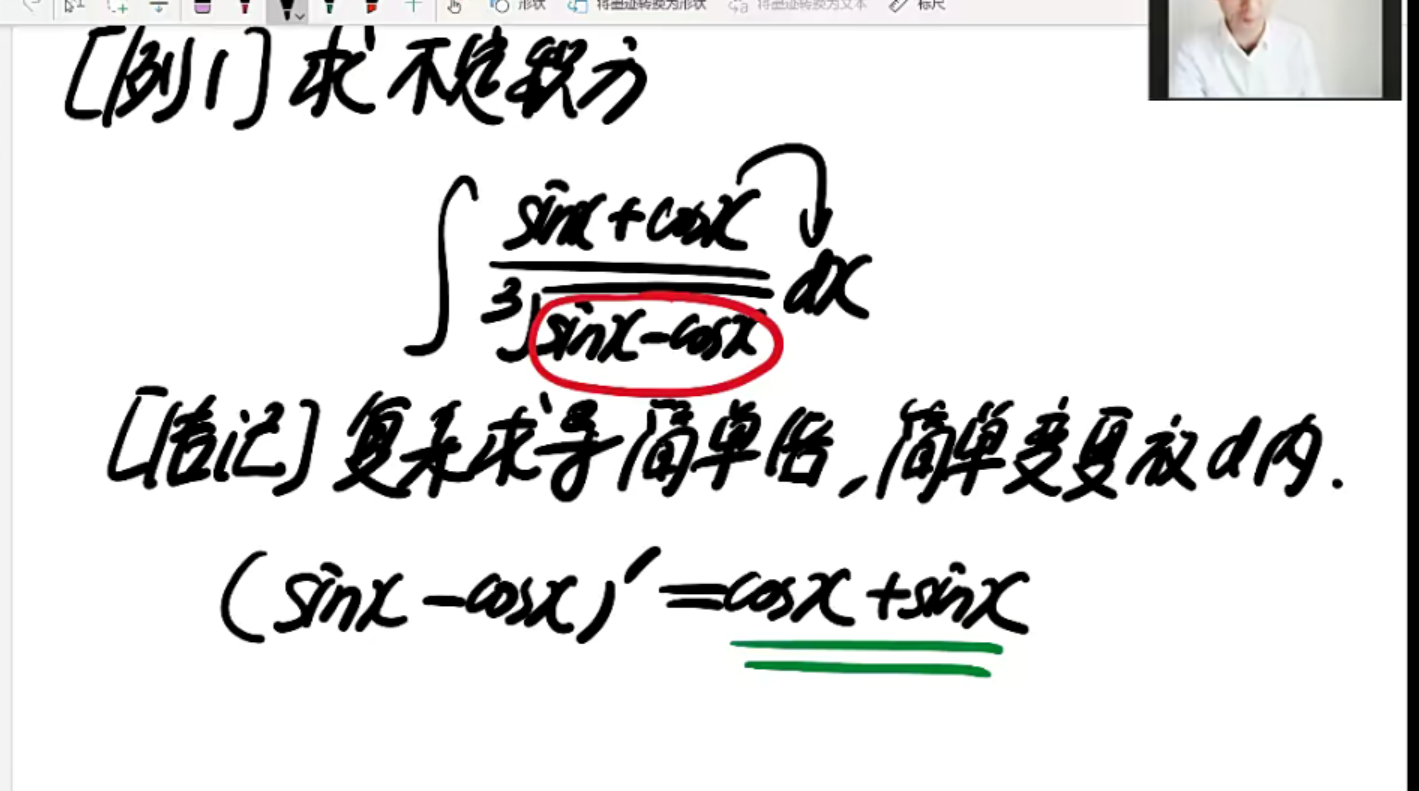 形状 将墨迹转换为形状 将墨迹转换为文本 标尺
[例1] 求不定积分
∫ (sinx+cosx)/∛(sinx-cosx) dx
[传记] 复杂求导简单倍,简单变复放d内.
(sinx-cosx)′=cosx+sinx